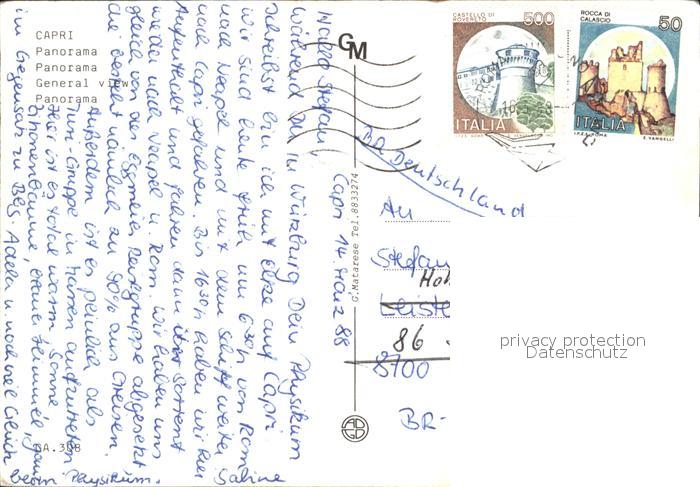 CAPRI
Panorama
Panorama
General view
Panorama
GM
CASTELLO DI ROVERETO
500
ITALIA
ROCCA DI CALASCIO
50
ITALIA
I.P.Z.S. ROMA
E. VANGELLI
BR Deutschland
Capri 14. März 88
Hallo Stefan!
Während Du in Würzburg Dein Physikum
schreibst bin ich mit Elke auf Capri.
Wir sind heute früh um 6 30 h von Rom
nach Neapel und mit dem Schiff weiter
nach Capri gefahren. Bis 16 30 h haben wir hier
Aufenthalt und fahren dann über Sorrent
wieder nach Neapel u. Rom. Wir haben uns
gleich von der Reisegruppe abgesetzt
die besteht nämlich zu 90% aus Greisen.
Außerdem ist es peinlich als
Gruppe in Massen aufzutreten.
Hier ist es total warm, Sonne,
Zitronenbäume, blauer Himmel, ganz
im Gegensatz zu BRS. Adela u. noch viel Glück
beim Physikum.
Sabine
G. Matarese Tel. 8833274
An
Stefan
Leiste
86
8700
BR-
privacy protection
Datenschutz
GA. 308